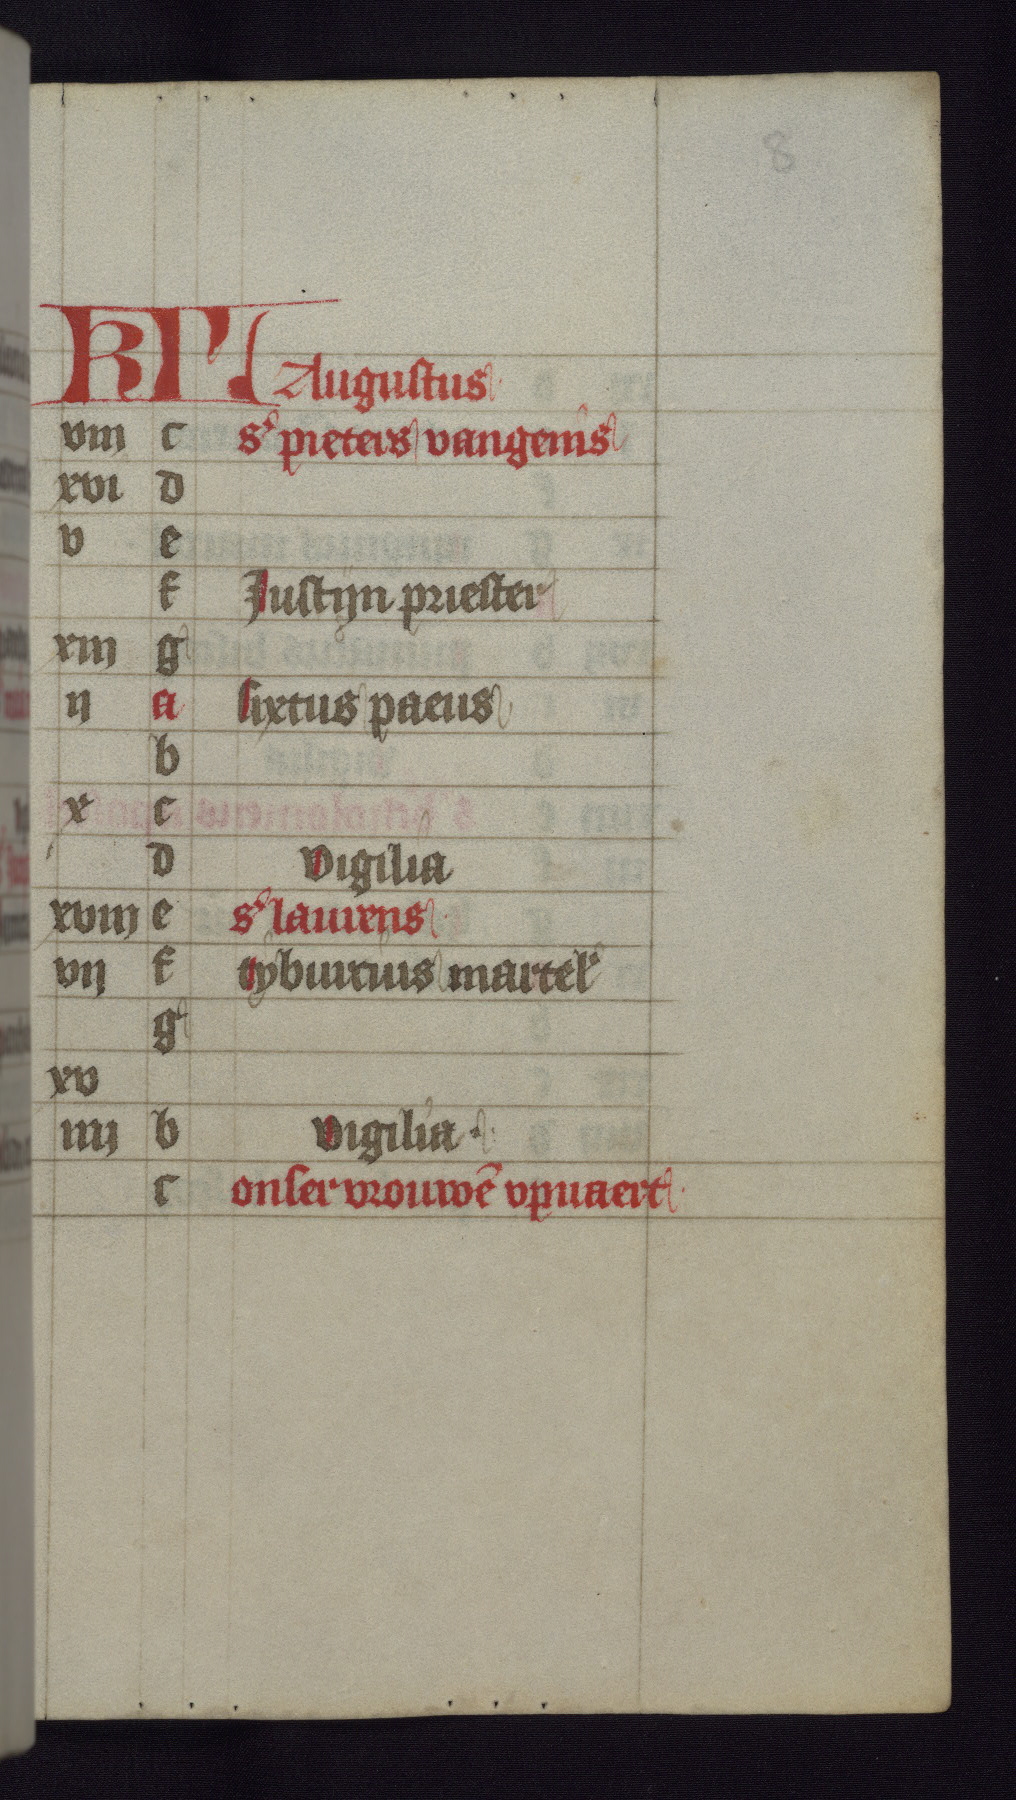 8
KL Augustus
viii c s' pieters vangenis
xvi d
v e
f Justijn priester
xiii g
ij a sixtus paeus
b
x c
d vigilia
xviij e s' laurens
vij f tyburcius martel'
g
xv
iiij b vigilia
c onser vrouwē vpuaert